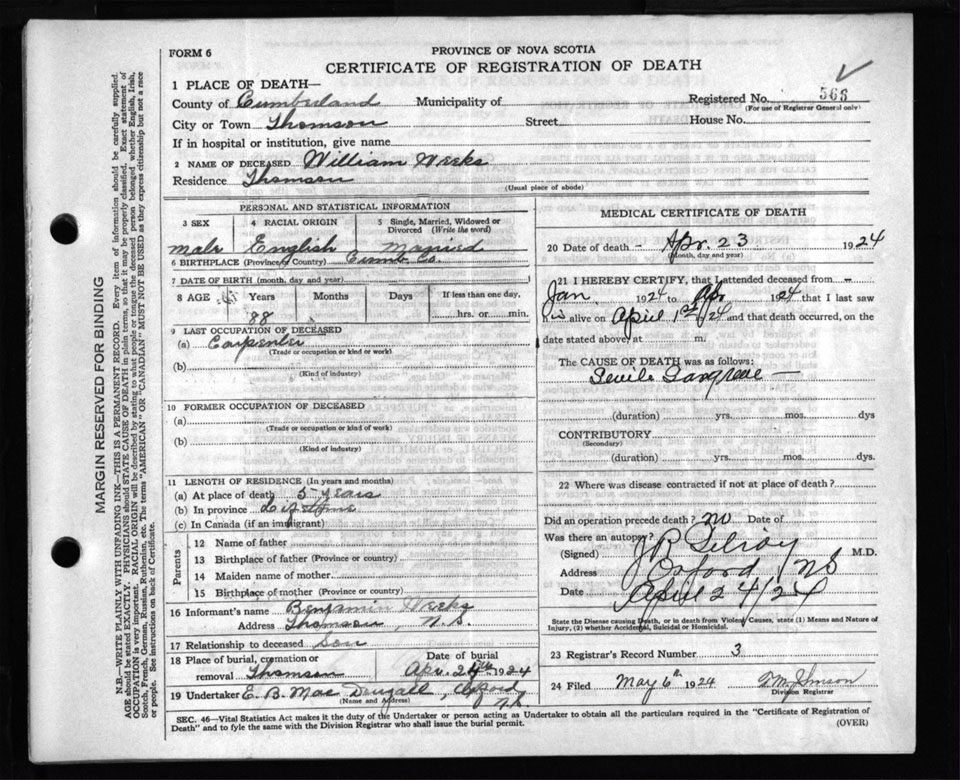 FORM 6
PROVINCE OF NOVA SCOTIA
CERTIFICATE OF REGISTRATION OF DEATH
1 PLACE OF DEATH—
County of Cumberland Municipality of
Registered No. 563
(For use of Registrar General only)
City or Town Thomson Street House No.
If in hospital or institution, give name
2 NAME OF DECEASED William Weeks
Residence Thomson
(Usual place of abode)
PERSONAL AND STATISTICAL INFORMATION
3 SEX 4 RACIAL ORIGIN 5 Single, Married, Widowed or Divorced (Write the word)
male English Married
6 BIRTHPLACE (Province, Country) Cumb. Co.
7 DATE OF BIRTH (month, day and year)
8 AGE Years Months Days If less than one day,
88 hrs. or min.
9 LAST OCCUPATION OF DECEASED
(a) Carpenter
(Trade or occupation or kind or work)
(b)
(Kind of industry)
10 FORMER OCCUPATION OF DECEASED
(a)
(Trade or occupation or kind or work)
(b)
(Kind of industry)
11 LENGTH OF RESIDENCE (In years and months)
(a) At place of death 5 years
(b) In province
(c) In Canada (if an immigrant)
Parents
12 Name of father
13 Birthplace of father (Province or country)
14 Maiden name of mother
15 Birthplace of mother (Province or country)
16 Informant's name Benjamin Weeks
Address Thomson, N.S.
17 Relationship to deceased Son
18 Place of burial, cremation or removal Thomson
Date of burial
Apr. 24th 1924
19 Undertaker E. B. Mac Dougall, Oxford, N.S.
(Name and Address)
MEDICAL CERTIFICATE OF DEATH
20 Date of death – Apr. 23 1924
(Month, day and year)
21 I HEREBY CERTIFY, that I attended deceased from —
Jan. 1924 to Ap. 1924 that I last saw
his alive on April 1st /24 and that death occurred, on the
date stated above, at m.
The CAUSE OF DEATH was as follows:
Senile Gangrene —
(duration) yrs. mos. dys
CONTRIBUTORY
(Secondary)
(duration) yrs. mos. dys.
22 Where was disease contracted if not at place of death?
Did an operation precede death? no Date of
Was there an autopsy?
(Signed) J R Gilroy M.D.
Address Oxford NS
Date April 24/24
State the Disease causing Death, or in death from Violent Causes, state (1) Means and Nature of
Injury, (2) whether Accidental, Suicidal or Homicidal.
23 Registrar's Record Number 3
24 Filed May 6th 1924
Division Registrar
SEC. 46—Vital Statistics Act makes it the duty of the Undertaker or person acting as Undertaker to obtain all the particulars required in the "Certificate of Registration of
Death" and to fyle the same with the Division Registrar who shall issue the burial permit.
(OVER)
MARGIN RESERVED FOR BINDING
N.B.—WRITE PLAINLY WITH UNFADING INK—THIS IS A PERMANENT RECORD. Every item of information should be carefully supplied.
AGE should be stated EXACTLY. PHYSICIANS should STATE CAUSE OF DEATH in plain terms, so that it may be properly classified. Exact statement of
OCCUPATION is very important. RACIAL ORIGIN will be described by stating to what people or tongue the deceased person belonged whether English, Irish,
Scotch, French, German, Russian, Ruthenian, etc. The terms "AMERICAN" OR "CANADIAN" MUST NOT BE USED as they express citizenship but not a race
or people. See instructions on back of Certificate.